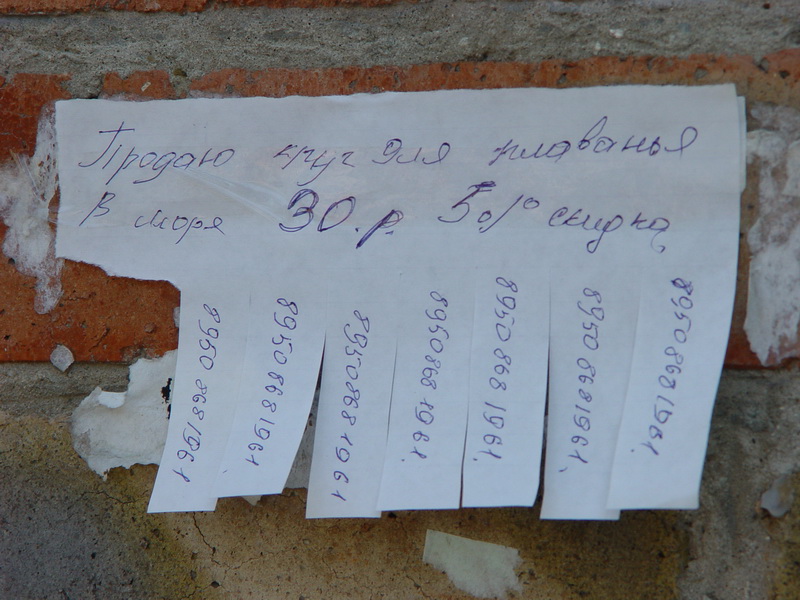 Продаю круг для плаванья
в моря 30.р. 5% скидка
8950 868 1961
8950 868 1961
8950868 1961
8950868 1961
8950 868 1961
8950 8681961
8950 868 1961